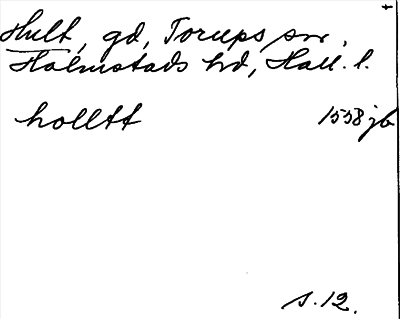 Hult, gd, Torups sn,
Halmstads hd, Hall. l.
holltt 1558 jb
s. 12.